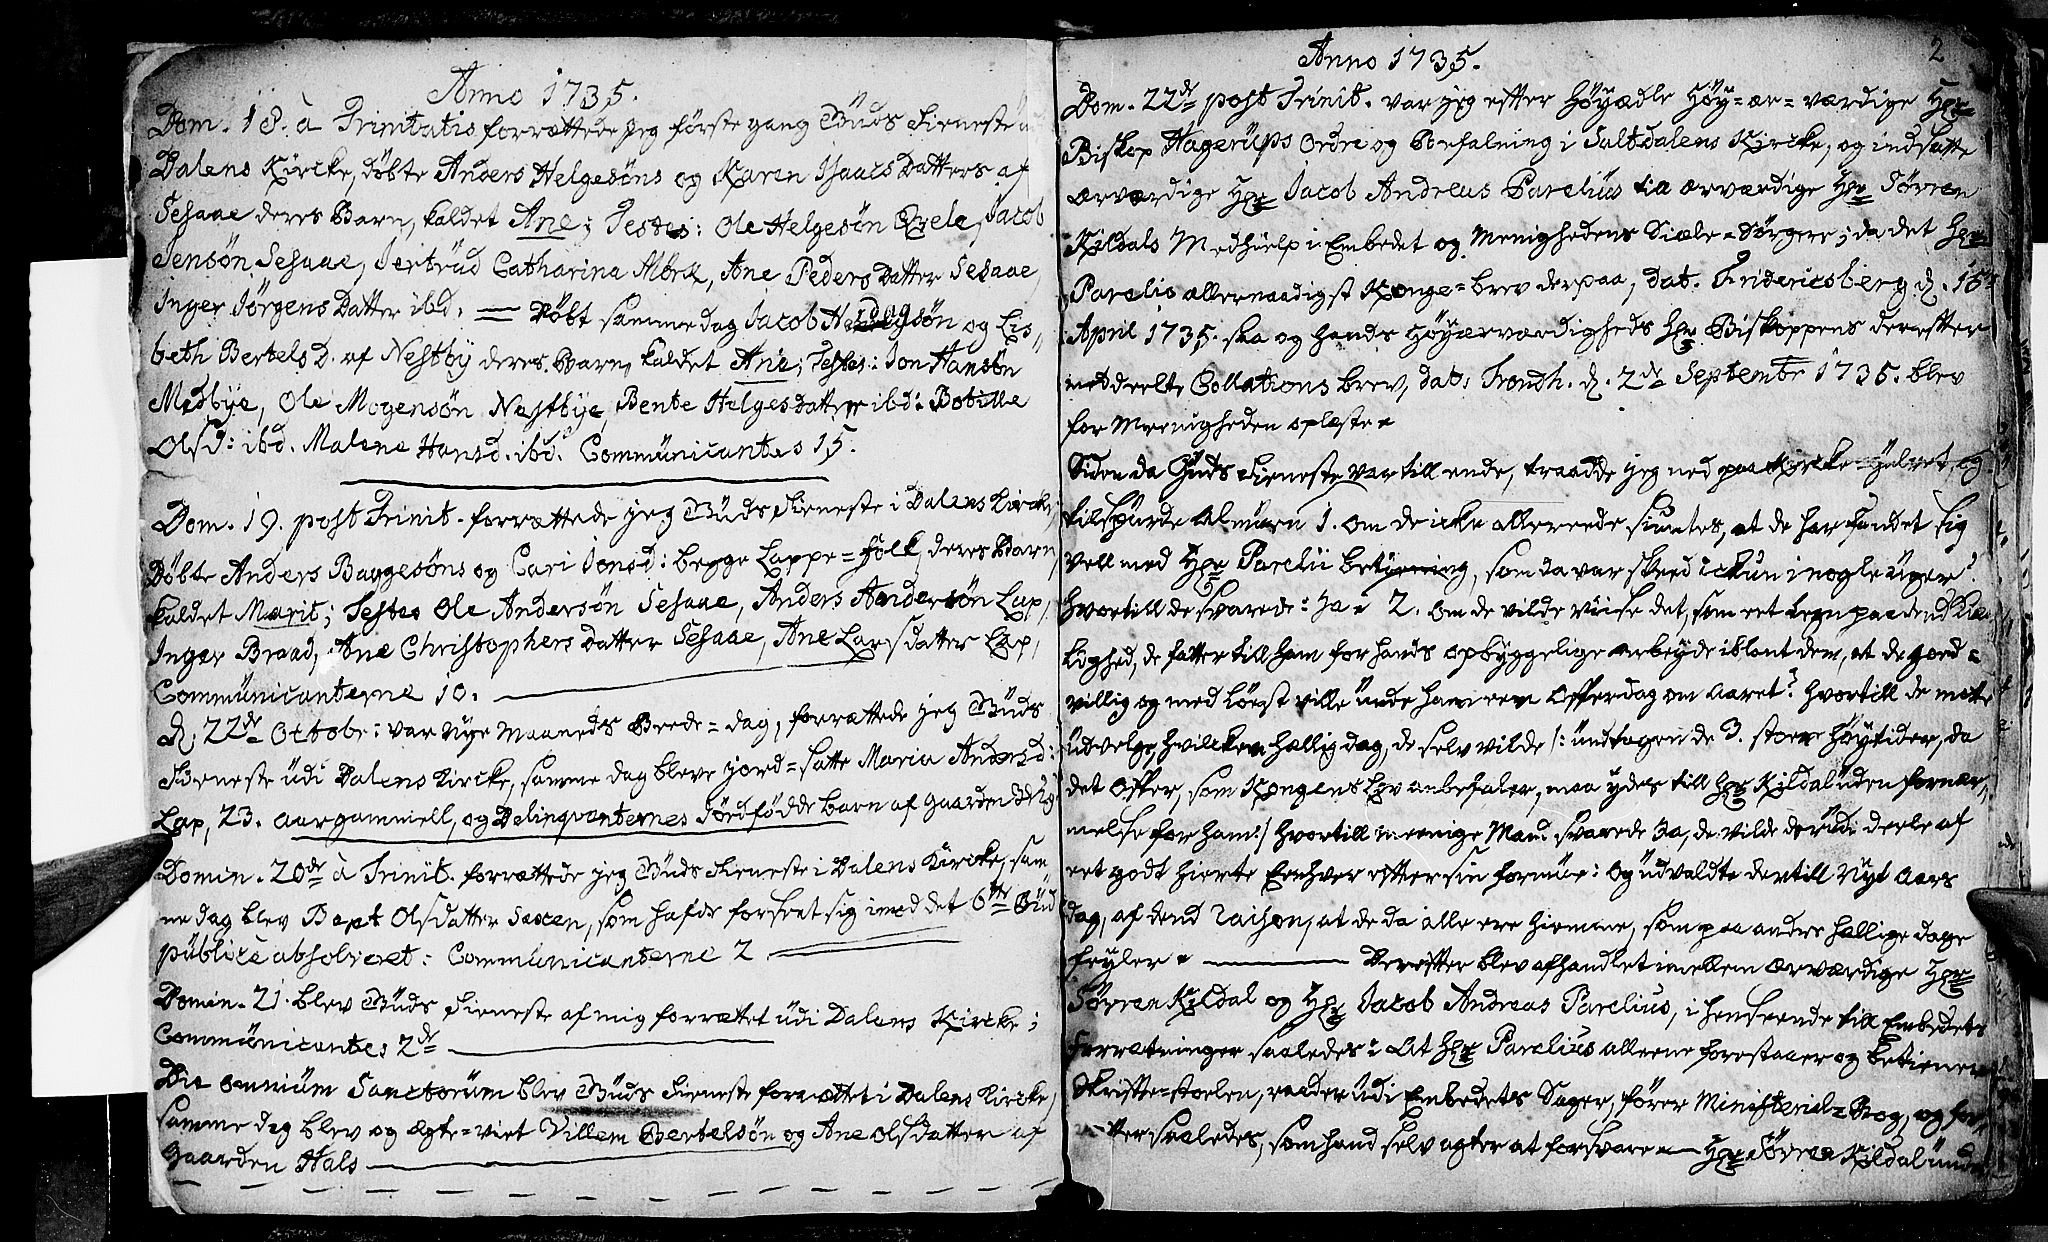 Anno 1735.
Dom. 18. à Trinitatis forrættede jeg første gang Guds Tieneste ü
Dalens Kircke, døbte Anders Helgesøns og Karen Isaacs Datters af
Sesaae deres Barn, kaldet Ane; Testes: Ole Helgesøn Qvele, Jacob
Jensøn Sesaae, Jertrüd Catharina Mörck, Ane Peders Datter Sesaae,
Inger Jörgens Datter ibd. — Döbt samme dag Jacob søn og Lis,,
beth Bertels D. af Nestby deres Barn, kaldet Ane, Testes: Jon Hansøn
Medbye, Ole Mogensøn Nestbye, Bente Helges datter ibd: Botille
Olsd: ibd. Malene Hansd. ibd. Commünicantes 15.
Dom. 19. post Trinit. forrættede jeg Güds Tieneste i Dalens Kircke,
Döbte Anders Baggesøns og Cari Jonsd: begge Lappe=Folk, deres Barn,
kaldet Marit; Testes Ole Andersøn Sesaae, Anders Andersøn Lap,
Inger Braad, Ane Christophers Datter Sesaae, Ane Larsdatter Lap,
Commünicanterne 10.
d. 22de Octobr: var Nye Maaneds Beede=dag, forrættede jeg Güds
Tieneste üdi Dalens Kircke, samme dag bleve jord=satte Maria Andersd:
Lap, 23. aar gammell, og Delinqvanternes Dödfödde barn af gaarden
Domin. 20de à Trinit. forrættede jeg Güds Tieneste i Dalens Kircke, sam
me dag blev Beret Olsdatter Saxen, som hafde forseet sig imod det 6te Büd
püblicè absolveret: Communicanterne 2
Domin. 21. blev Güds Tieneste af mig forrættet üdi Dalens Kircke;
Commünicantes 2de
Die omniüm Sanctorüm blev Güds Tieneste forrættet i Dalens Kircke,
samme dag blev og ægte=viet Villem Bertelsøn og Ane Olsdatter af
Gaarden Hals
2
Anno 1735.
Dom. 22de post Trinit. var jeg efter Höyædle Höy=ær=værdige Hr
Biskop Hagerüps Ordre og Befalning i Saltdalens Kircke, og indsatte
ærværdige Hr Jacob Andreas Parelius till ærværdige Hr Sörren
Kildals Medhielp i Embedet og Menighedens Siæle=Sörgere; da det Hr
Parelio allernaadigst Konge=brev derpaa, dat. Fridericsberg d. 15
April 1735. saa og hands Höyærværdigheds Hr Biskoppens derefter
meddeelte Collations brev, dat: Trondh. d. 2de Septembr 1735. blev
for Meenigheden oplæste.
Siden da Güds Tieneste var till ende, traadde jeg ned paa Kircke=Gulvet, og
tilspurde Almuen 1. om de icke allereede siuntes, at de har fundet sig
vell med Hr Parelii betiening, som da var skeed ickun i nogle Uger?
hvortill de svarede: Ja. 2. om de vilde viise det, som eet tegn paa dend Kier,
lighed, de fatter till ham for hands opbyggelige arbeyde iblant dem, at de goed=
villig og med løst ville ünde ham een Offerdag om Aaret? hvortill de motte
üdvelge, hvilcken hellig dag, de selv vilde /: undtagen de 3. store Höytider, da
det Offer, som Kongens Lov anbefaler, maa ydes till Hr Kildal uden fornær,
melse for ham:/ hvortill meenige Mand svarede Ja, de vilde derüdi deele af
eet godt Hierte Eenhver efter sin formüe: Og üdvaldte dertill Nyt Aars
dag, af dend raison, at de da alle ere hiemme, som paa andre hellige dage
feyler. — Derefter blev afhandlet imellem ærværdige Hr
Sörren Kildal og Hr Jacob Andreas Parelius, i henseende till Embedets
Forretninger saaledes: At Hr Parelius alleene forestaaer og betiener
Skriftestoelen, raader üdi Embedets Sager, förer Ministerial=Bog, og for,
retter saaledes, som hand selv agter at forsvare — Hr Sörren Kildal ünde